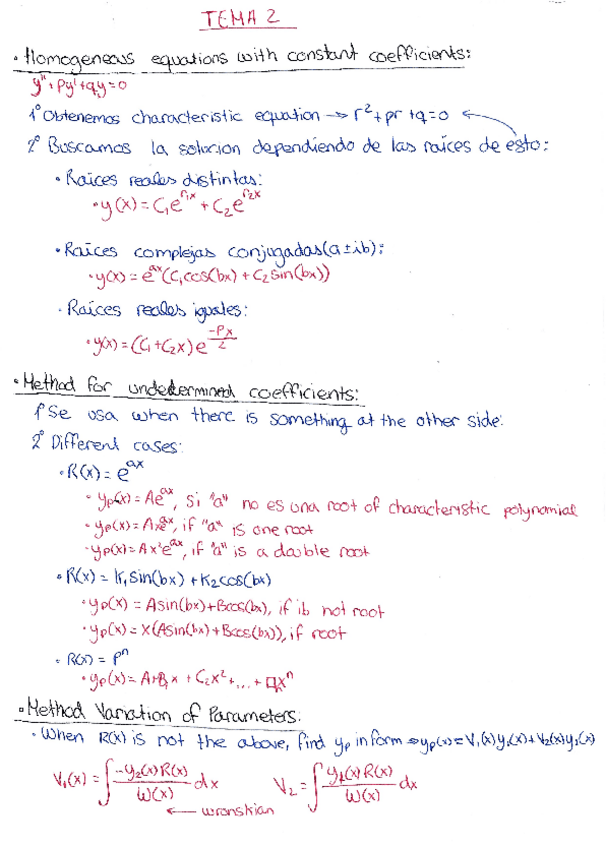 TEMA 2
• Homogeneous equations with constant coefficients:
y''+Py'+qy=0
1º Obtenemos characteristic equation → r²+pr+q=0 ←
2º Buscamos la solucion dependiendo de las raíces de esto:
• Raíces reales distintas:
• y(x) = C₁e^{r₁x} + C₂e^{r₂x}
• Raíces complejas conjugadas (a±ib):
• y(x) = e^{ax}(C₁cos(bx) + C₂sin(bx))
• Raices reales iguales:
• y(x) = (C₁+C₂x)e^{-Px/2}
• Method for undetermined coefficients:
1º Se usa when there is something at the other side:
2º Different cases:
• R(x) = e^{ax}
• yp(x) = Ae^{ax}, si "a" no es una root of characteristic polynomial
• yp(x) = Axe^{ax}, if "a" is one root
• yp(x) = Ax²e^{ax}, if "a" is a double root
• R(x) = K₁sin(bx) + K₂cos(bx)
• yp(x) = Asin(bx)+Bcos(bx), if ib not root
• yp(x) = x(Asin(bx)+Bcos(bx)), if root
• R(x) = Pⁿ
• yp(x) = A+B₁x + C₂x²+...+ xⁿ
• Method Variation of Parameters:
• When R(x) is not the above, find yp in form → yp(x) = V₁(x)y₁(x)+V₂(x)y₂(x)
V₁(x) = ∫ -y₂(x)R(x)/W(x) dx V₂ = ∫ y₁(x)R(x)/W(x) dx
← wronskian